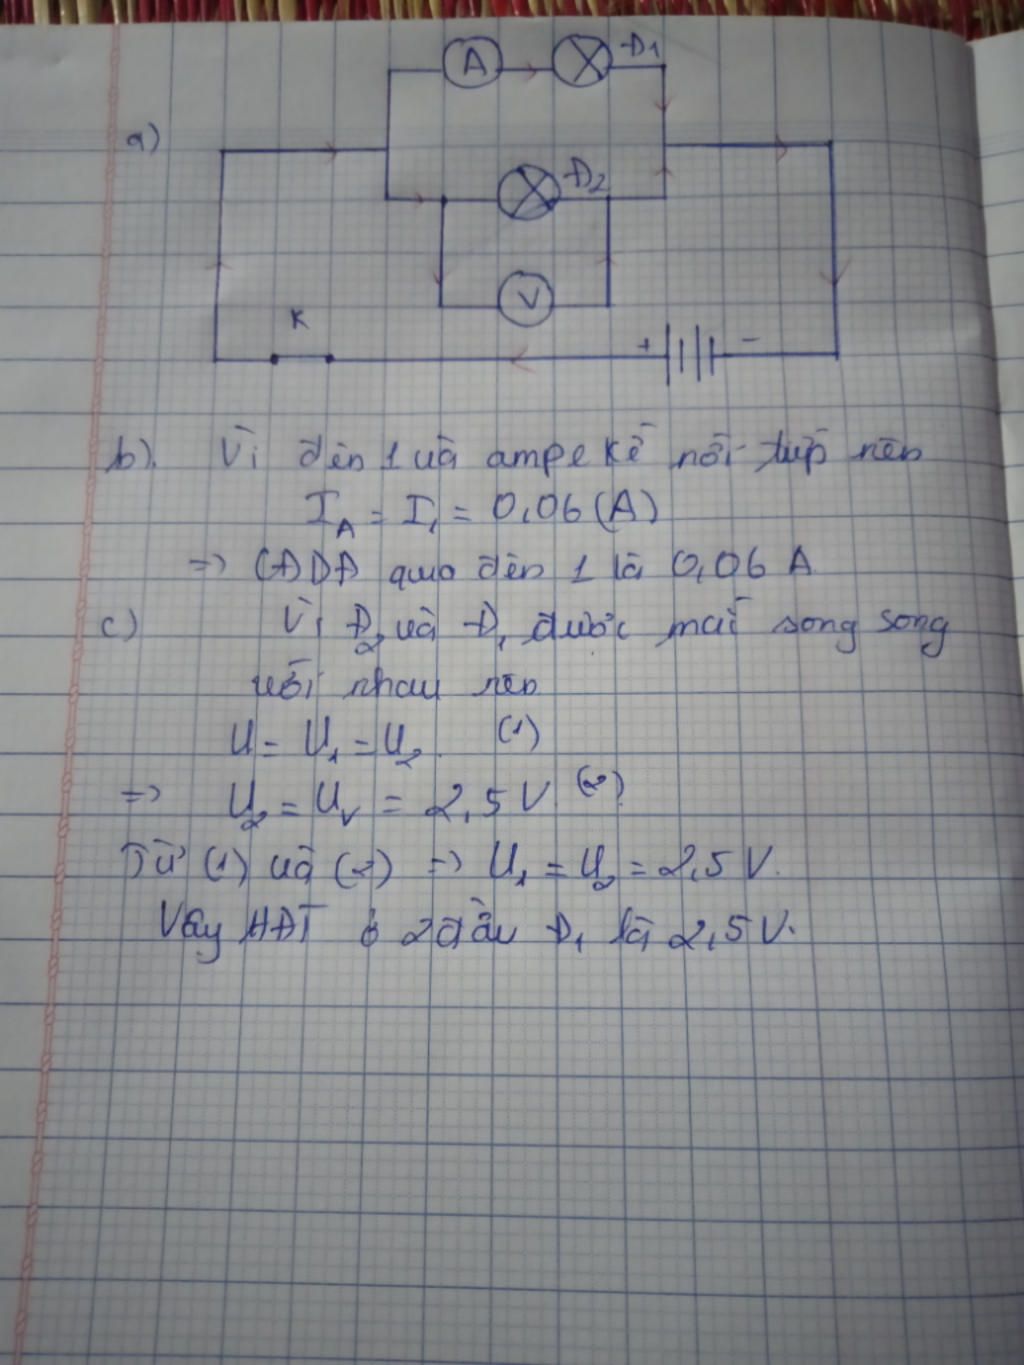 a)
A
Đ1
Đ2
V
K
+ -
b). Vì đèn 1 và ampe kế nối tiếp nên
I_A = I_1 = 0,06 (A)
=> CĐDĐ qua đèn 1 là 0,06 A
c) Vì Đ_2 và Đ_1 được mắc song song
với nhau nên
U = U_1 = U_2 (1)
=> U_2 = U_V = 2,5 V (2)
Từ (1) và (2) => U_1 = U_2 = 2,5 V.
Vậy HĐT ở 2 đầu Đ_1 là 2,5 V.